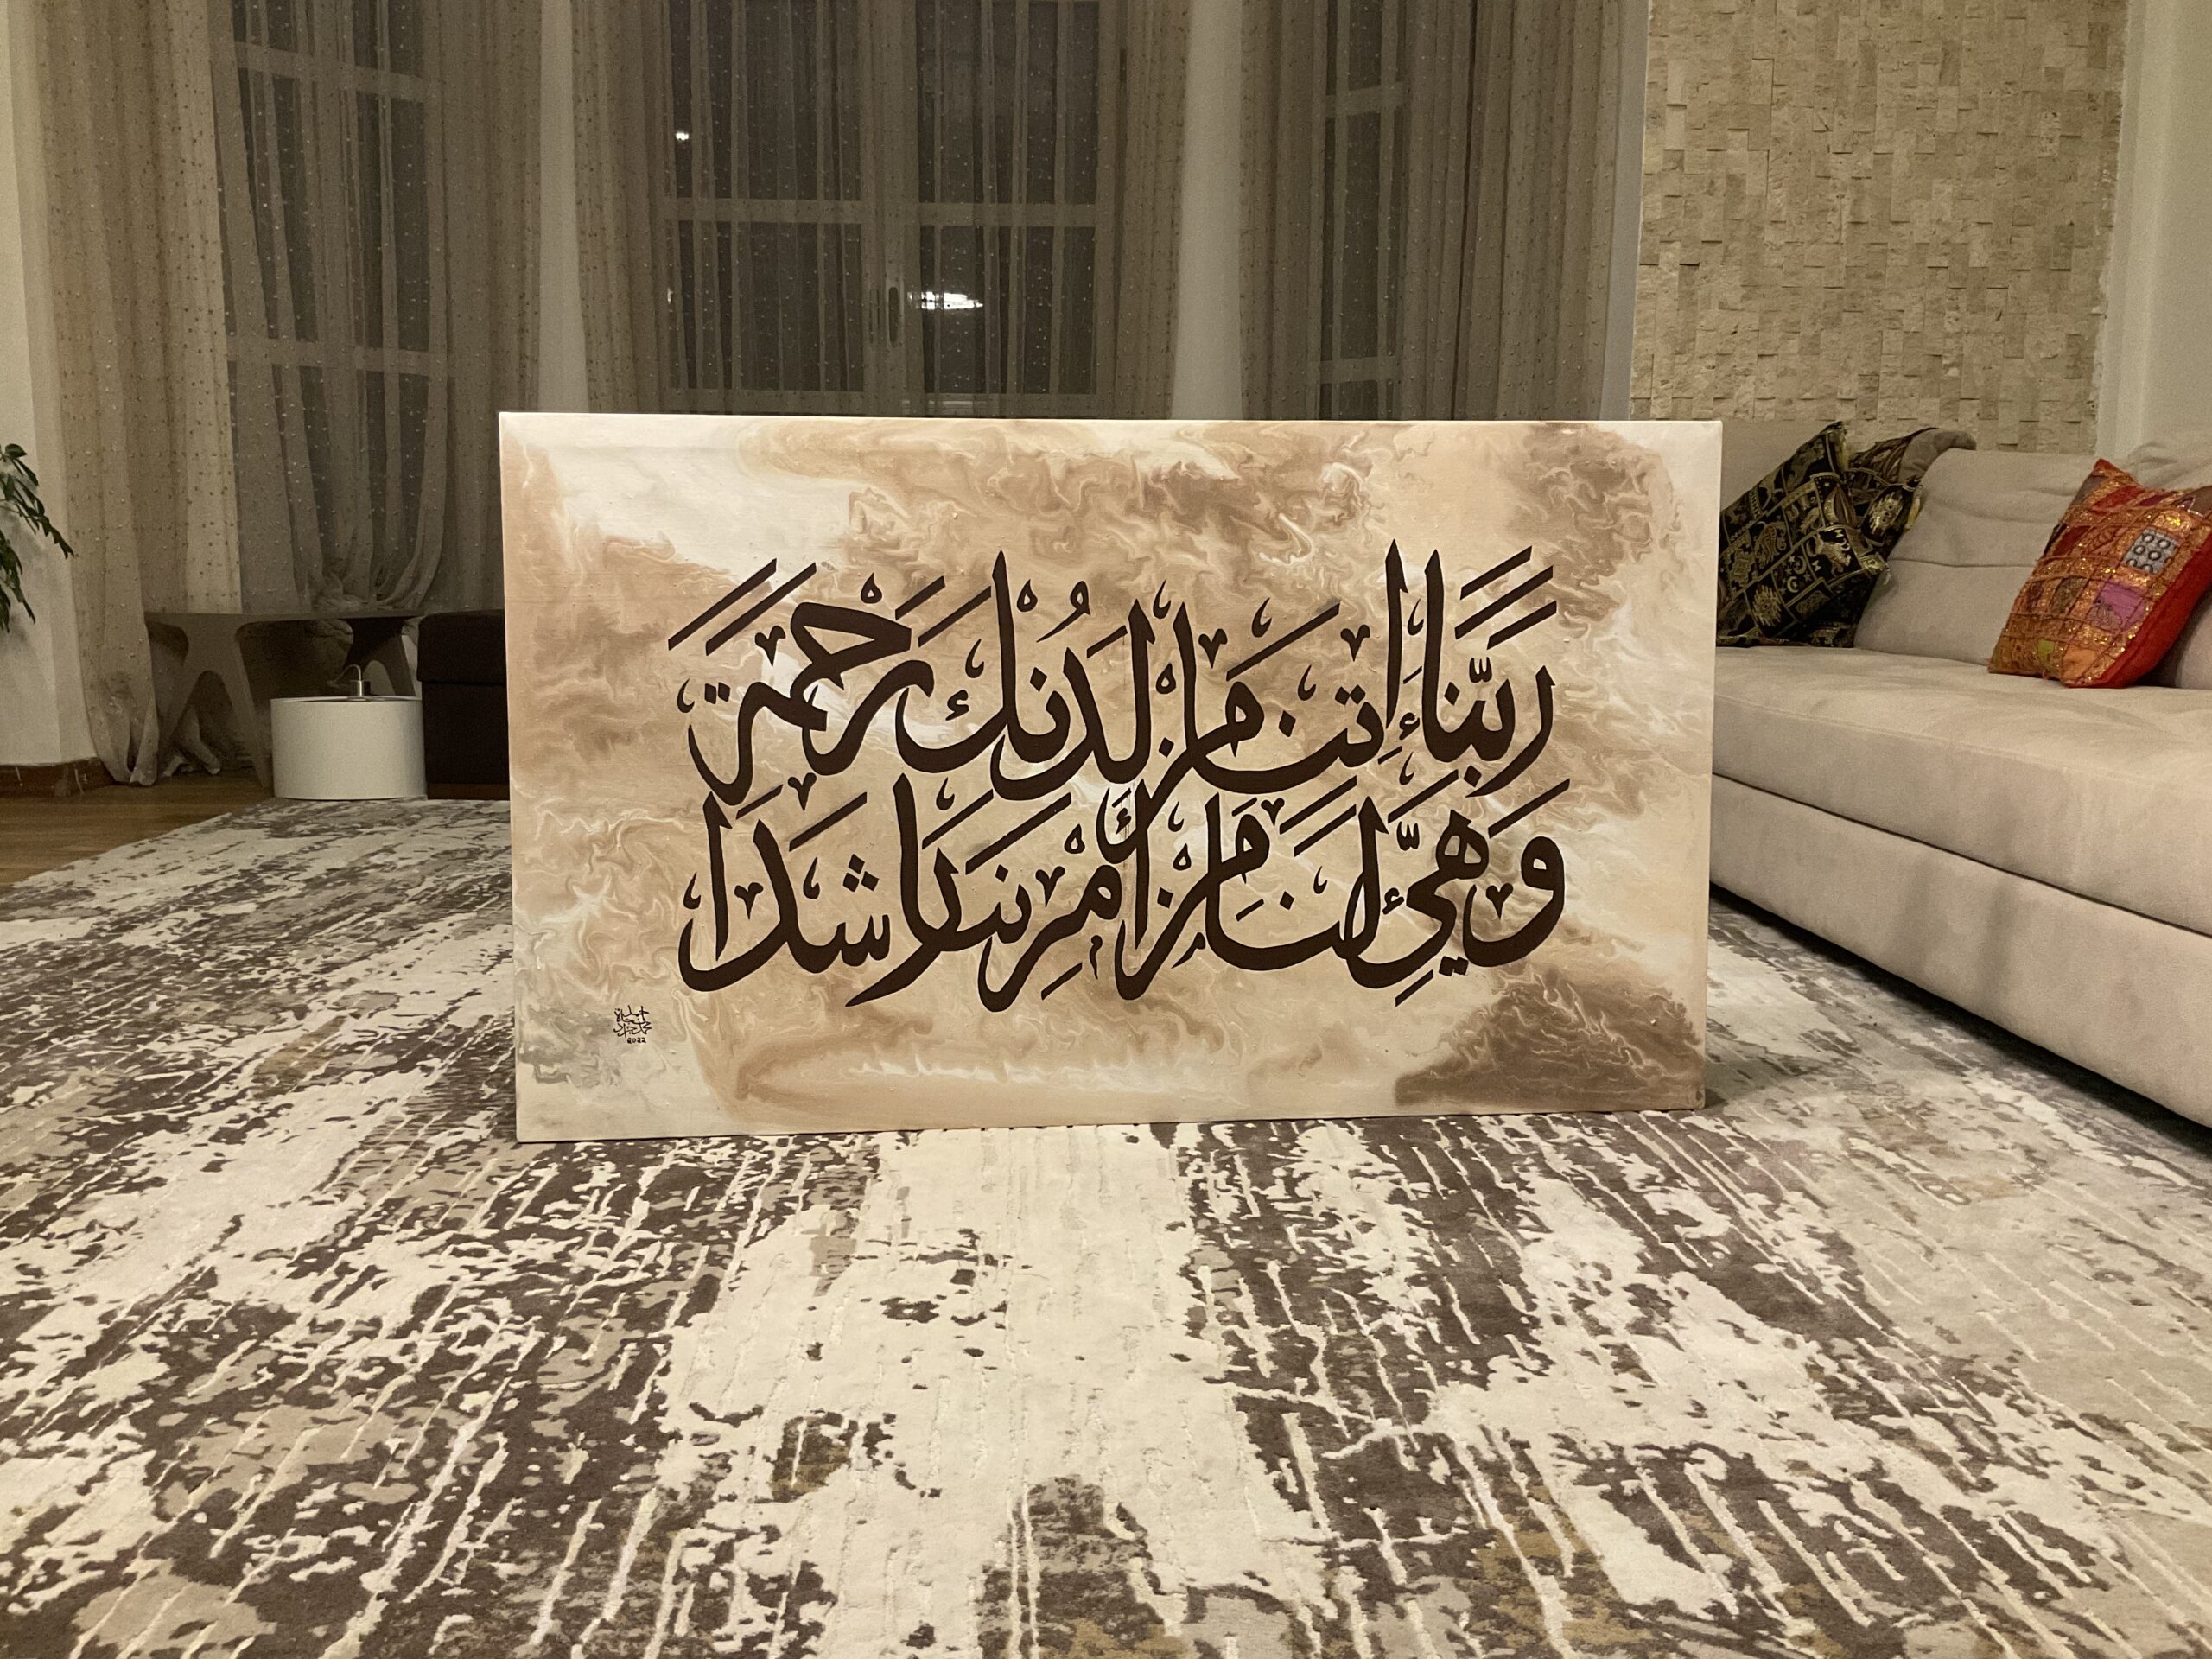 ربنا ءاتنا من لدنك رحمة
وهيئ لنا من أمرنا رشدا
2022